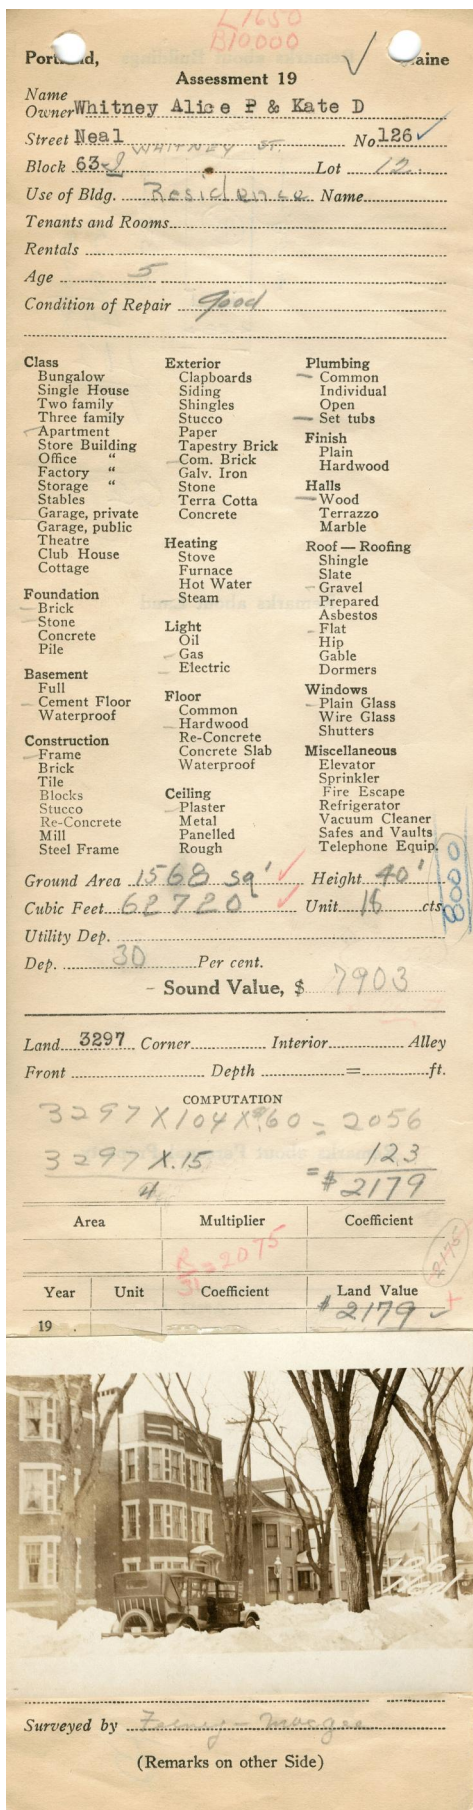 L1650
B10000
Portland, Maine
Assessment 19
Name
Owner Whitney Alice P & Kate D
Street Neal No 126
WHITNEY ST.
Block 63 Lot 12
Use of Bldg. Residence Name
Tenants and Rooms
Rentals
Age 5
Condition of Repair good
Class
Bungalow
Single House
Two family
Three family
Apartment
Store Building
Office "
Factory "
Storage "
Stables
Garage, private
Garage, public
Theatre
Club House
Cottage
Foundation
Brick
Stone
Concrete
Pile
Basement
Full
Cement Floor
Waterproof
Construction
Frame
Brick
Tile
Blocks
Stucco
Re-Concrete
Mill
Steel Frame
Exterior
Clapboards
Siding
Shingles
Stucco
Paper
Tapestry Brick
Com. Brick
Galv. Iron
Stone
Terra Cotta
Concrete
Heating
Stove
Furnace
Hot Water
Steam
Light
Oil
Gas
Electric
Floor
Common
Hardwood
Re-Concrete
Concrete Slab
Waterproof
Ceiling
Plaster
Metal
Panelled
Rough
Plumbing
Common
Individual
Open
Set tubs
Finish
Plain
Hardwood
Halls
Wood
Terrazzo
Marble
Roof — Roofing
Shingle
Slate
Gravel
Prepared
Asbestos
Flat
Hip
Gable
Dormers
Windows
Plain Glass
Wire Glass
Shutters
Miscellaneous
Elevator
Sprinkler
Fire Escape
Refrigerator
Vacuum Cleaner
Safes and Vaults
Telephone Equip.
8000
Ground Area 1568 sq' Height 40'
Cubic Feet 62720 Unit 18 cts.
Utility Dep.
Dep. 30 Per cent.
Sound Value, $ 7903
Land 3297 Corner Interior Alley
Front Depth = ft.
COMPUTATION
3297 X 104 X .60 = 2056
3297 X .15 = 123
4 $2179
Area Multiplier Coefficient
R/31 = 2075
2175
Year Unit Coefficient Land Value
19 $2179
126
Neal
Surveyed by
(Remarks on other Side)